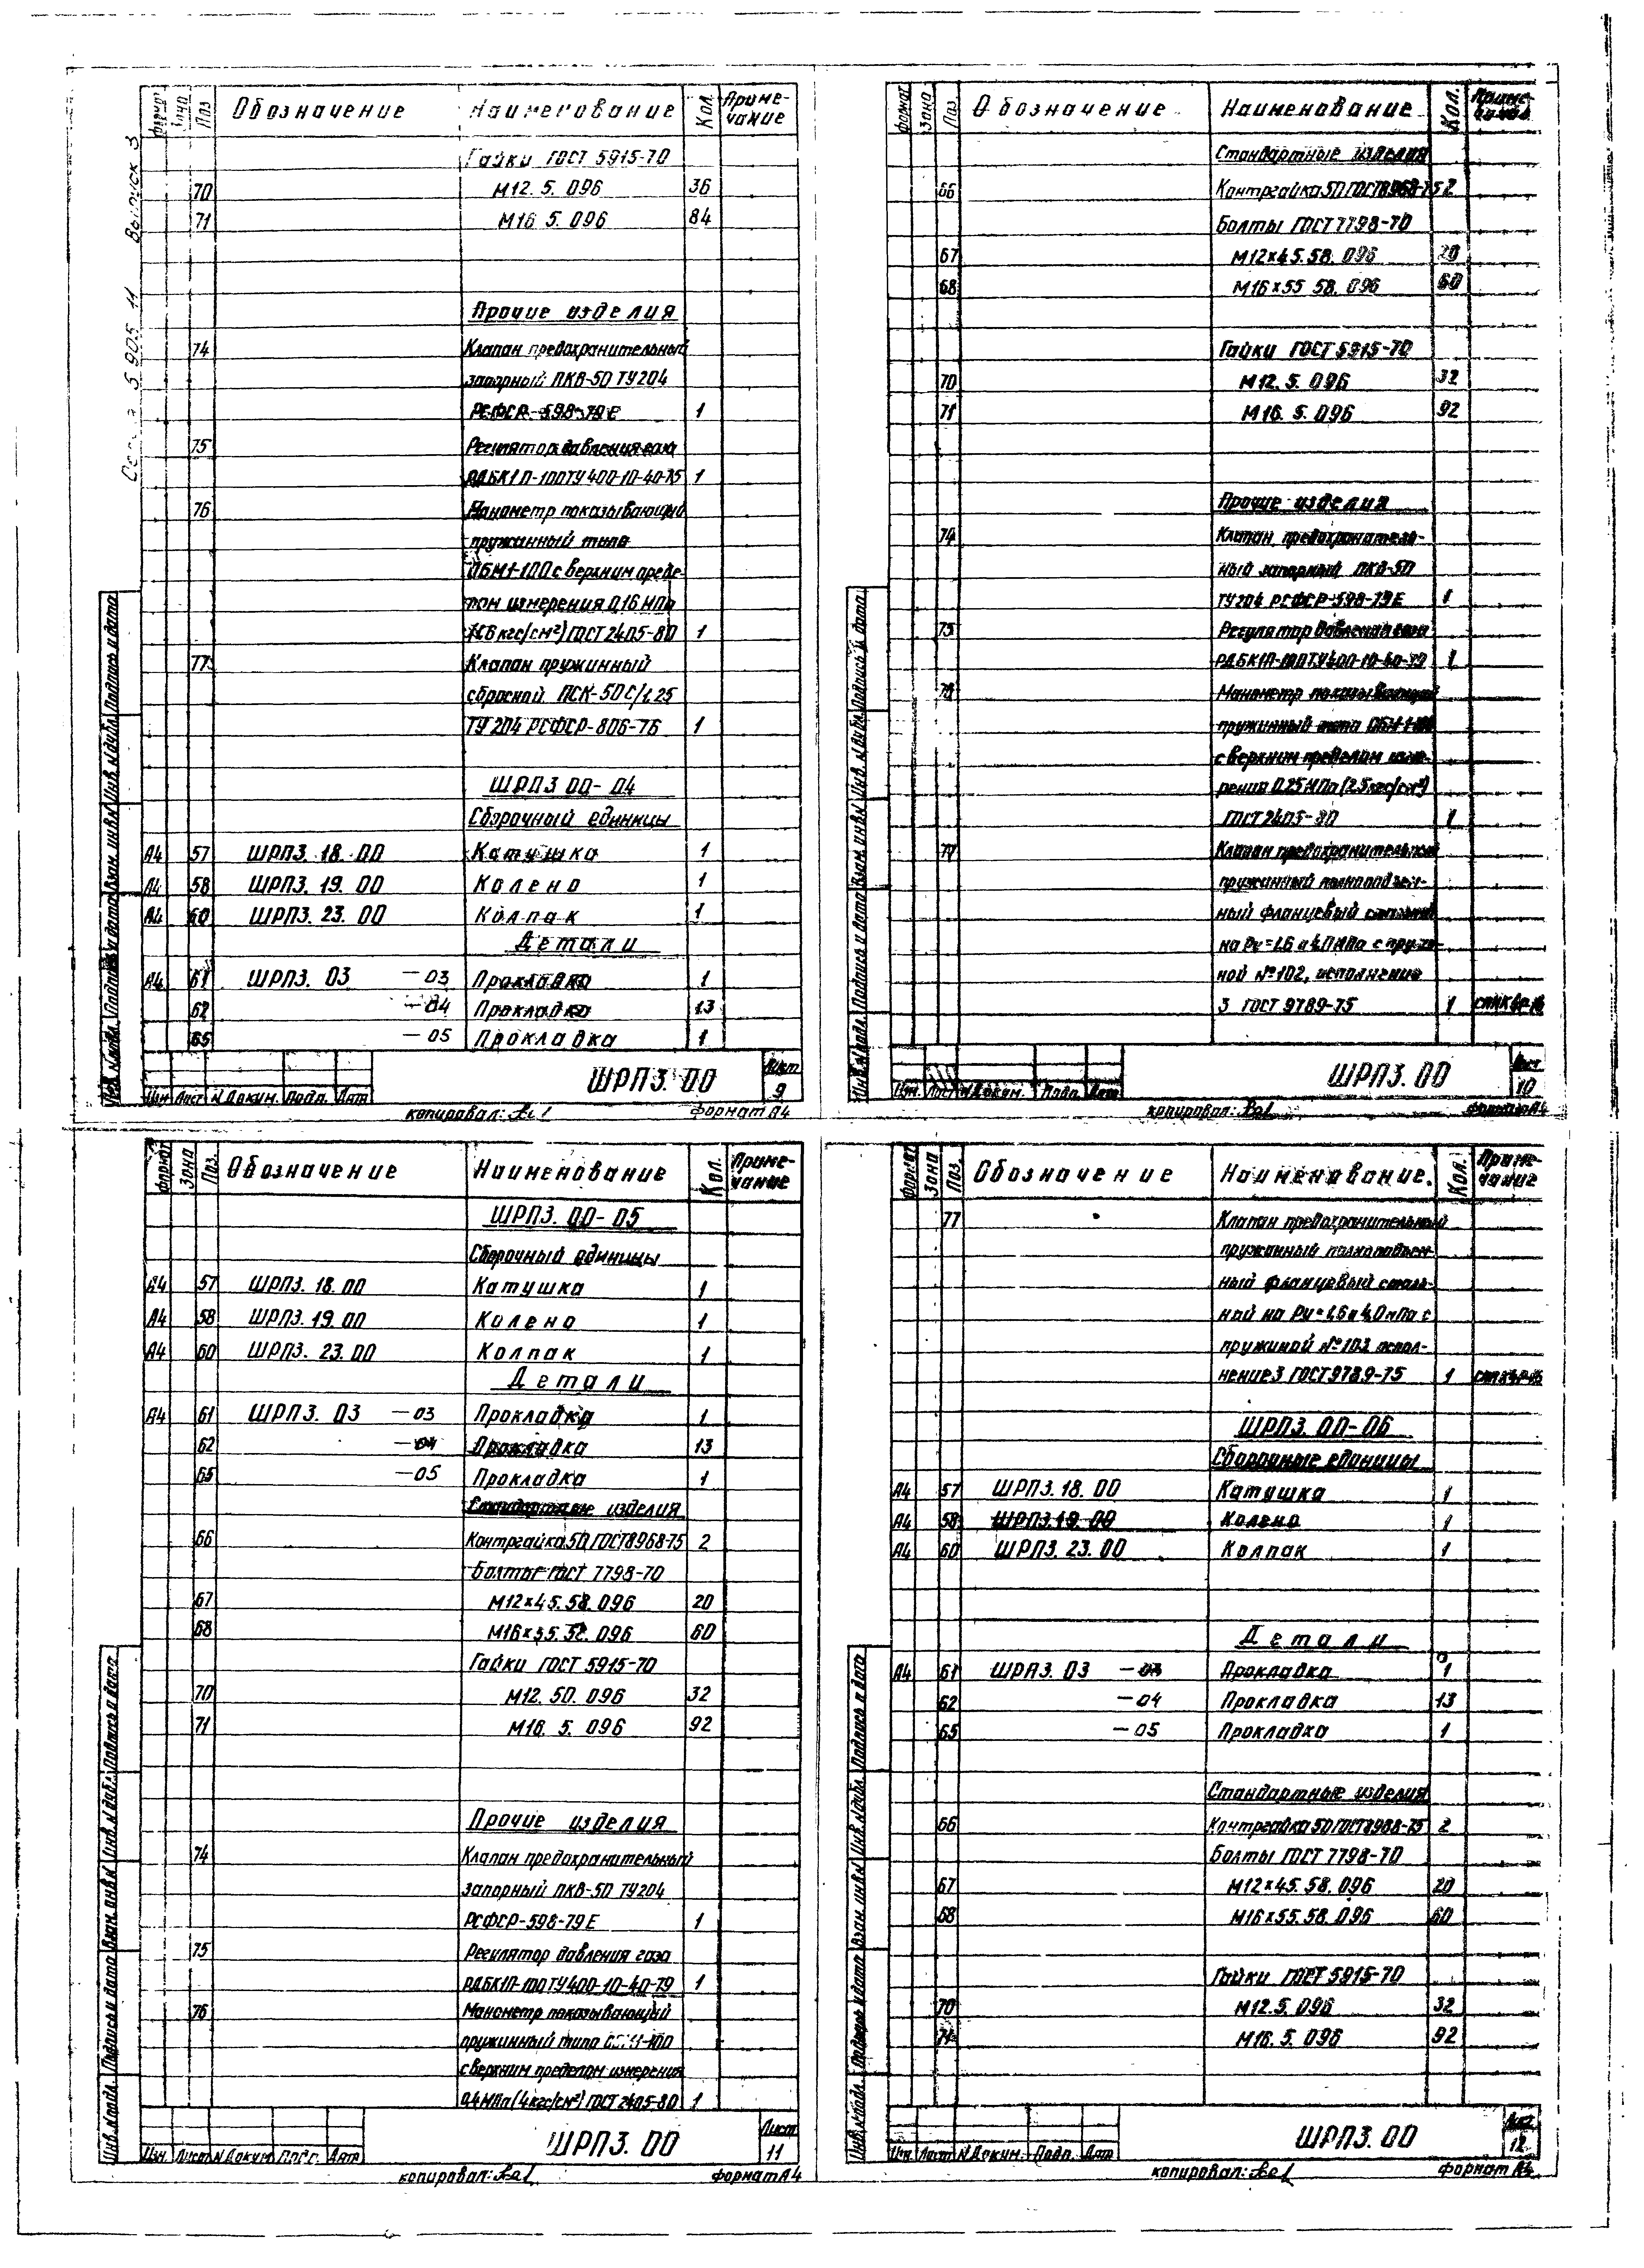 Серия 5.905-11 Выпуск 3
Формат Зона Поз. Обозначение Наименование Кол. Приме-
чание
Гайки ГОСТ 5915-70
70 М12. 5. 096 36
71 М16 5. 096 84
Прочие изделия
74 Клапан предохранительный
запорный ПКВ-50 ТУ204
РСФСР-598-79Е 1
75 Регулятор давления газа
РДБК1П-100 ТУ 400-10-40-75 1
76 Манометр показывающий
пружинный типа
ОБМ1-100 с верхним преде-
лом измерения 0,16 МПа
(1,6 кгс/см²) ГОСТ 2405-80 1
77 Клапан пружинный
сбросной ПСК-50С/1,25
ТУ 204 РСФСР-806-76 1
ШРП3 00-04
Сборочный единицы
А4 57 ШРП3. 18. 00 Катушка 1
А4 58 ШРП3. 19. 00 Колено 1
А4 60 ШРП3. 23. 00 Колпак 1
Детали
А4 61 ШРП3. 03 -03 Прокладка 1
62 -04 Прокладка 13
65 -05 Прокладка 1
Инв. N подл. Подпись и дата Взам. инв N Инв. N дубл. Подпись и дата
Изм Лист N Докум. Подп. Дата
ШРП3. 00
Лист
9
копировал:
формат А4
Формат Зона Поз Обозначение Наименование Кол. Приме-
чание
Стандартные изделия
66 Контргайка 50 ГОСТ 8968-75 2
Болты ГОСТ 7798-70
67 М12×45.58. 096 20
68 М16×55 58. 096 60
Гайки ГОСТ 5915-70
70 М12. 5. 096 32
71 М16. 5. 096 92
Прочие изделия
74 Клапан предохранитель-
ный запорный ПКВ-50
ТУ204 РСФСР-598-79Е 1
75 Регулятор давления газа
РДБК1П-100 ТУ400-10-40-79 1
76 Манометр показывающий
пружинный типа ОБМ-1-100
с верхним пределом изме-
рения 0,25 МПа (2,5 кгс/см²)
ГОСТ 2405-80 1
77 Клапан предохранительный
пружинный полноподъем-
ный фланцевый стальной
на Ру=1,6 и 4,0 МПа с пружи-
ной №102, исполнение
3 ГОСТ 9789-75 1
Инв. N подл. Подпись и дата Взам. инв N Инв. N дубл. Подпись и дата
Изм. Лист N Доким. Подп. Дата
ШРП3. 00
Лист
10
копировал:
формат А4
Формат Зона Поз. Обозначение Наименование Кол. Приме-
чание
ШРП3. 00-05
Сборочный единицы
А4 57 ШРП3. 18. 00 Катушка 1
А4 58 ШРП3. 19. 00 Колено 1
А4 60 ШРП3. 23. 00 Колпак 1
Детали
А4 61 ШРП3. 03 -03 Прокладка 1
62 -04 Прокладка 13
65 -05 Прокладка 1
Стандартные изделия
66 Контргайка 50 ГОСТ 8968-75 2
Болты ГОСТ 7798-70
67 М12×45. 58. 096 20
68 М16×55. 58. 096 60
Гайки ГОСТ 5915-70
70 М12. 50. 096 32
71 М16. 5. 096 92
Прочие изделия
74 Клапан предохранительный
запорный ПКВ-50 ТУ204
РСФСР-598-79Е 1
75 Регулятор давления газа
РДБК1П-100 ТУ400-10-40-79 1
76 Манометр показывающий
пружинный типа
с верхним пределом измерения
0,4 МПа (4 кгс/см²) ГОСТ 2405-80 1
Инв. N подл. Подпись и дата Взам. инв N Инв. N дубл. Подпись и дата
Изм. Лист N Докум Подп. Дата
ШРП3. 00
Лист
11
копировал:
формат А4
Формат Зона Поз. Обозначение Наименивание. Кол. Приме-
чание
77 Клапан предохранительный
пружинный полноподъем-
ный фланцевый сталь-
ной на Ру=1,6 и 4,0 МПа с
пружиной №103 испол-
нение 3 ГОСТ 9789-75 1
ШРП3. 00-06
Сборочные единицы
А4 57 ШРП3. 18. 00 Катушка 1
А4 58 ШРП3. 19. 00 Колено 1
А4 60 ШРП3. 23. 00 Колпак 1
Детали
А4 61 ШРП3. 03 -03 Прокладка 1
62 -04 Прокладка 13
65 -05 Прокладка 1
Стандартные изделия
66 Контргайка 50 ГОСТ 8968-75 2
Болты ГОСТ 7798-70
67 М12×45. 58. 096 20
68 М16×55. 58. 096 60
Гайки ГОСТ 5915-70
70 М12. 5. 096 32
71 М16. 5. 096 92
Инв. N подл. Подпись и дата Взам. инв N Инв. N дубл. Подпись и дата
Изм Лист N Доким. Подп. Дата
ШРП3. 00
Лист
12
копировал:
формат А4